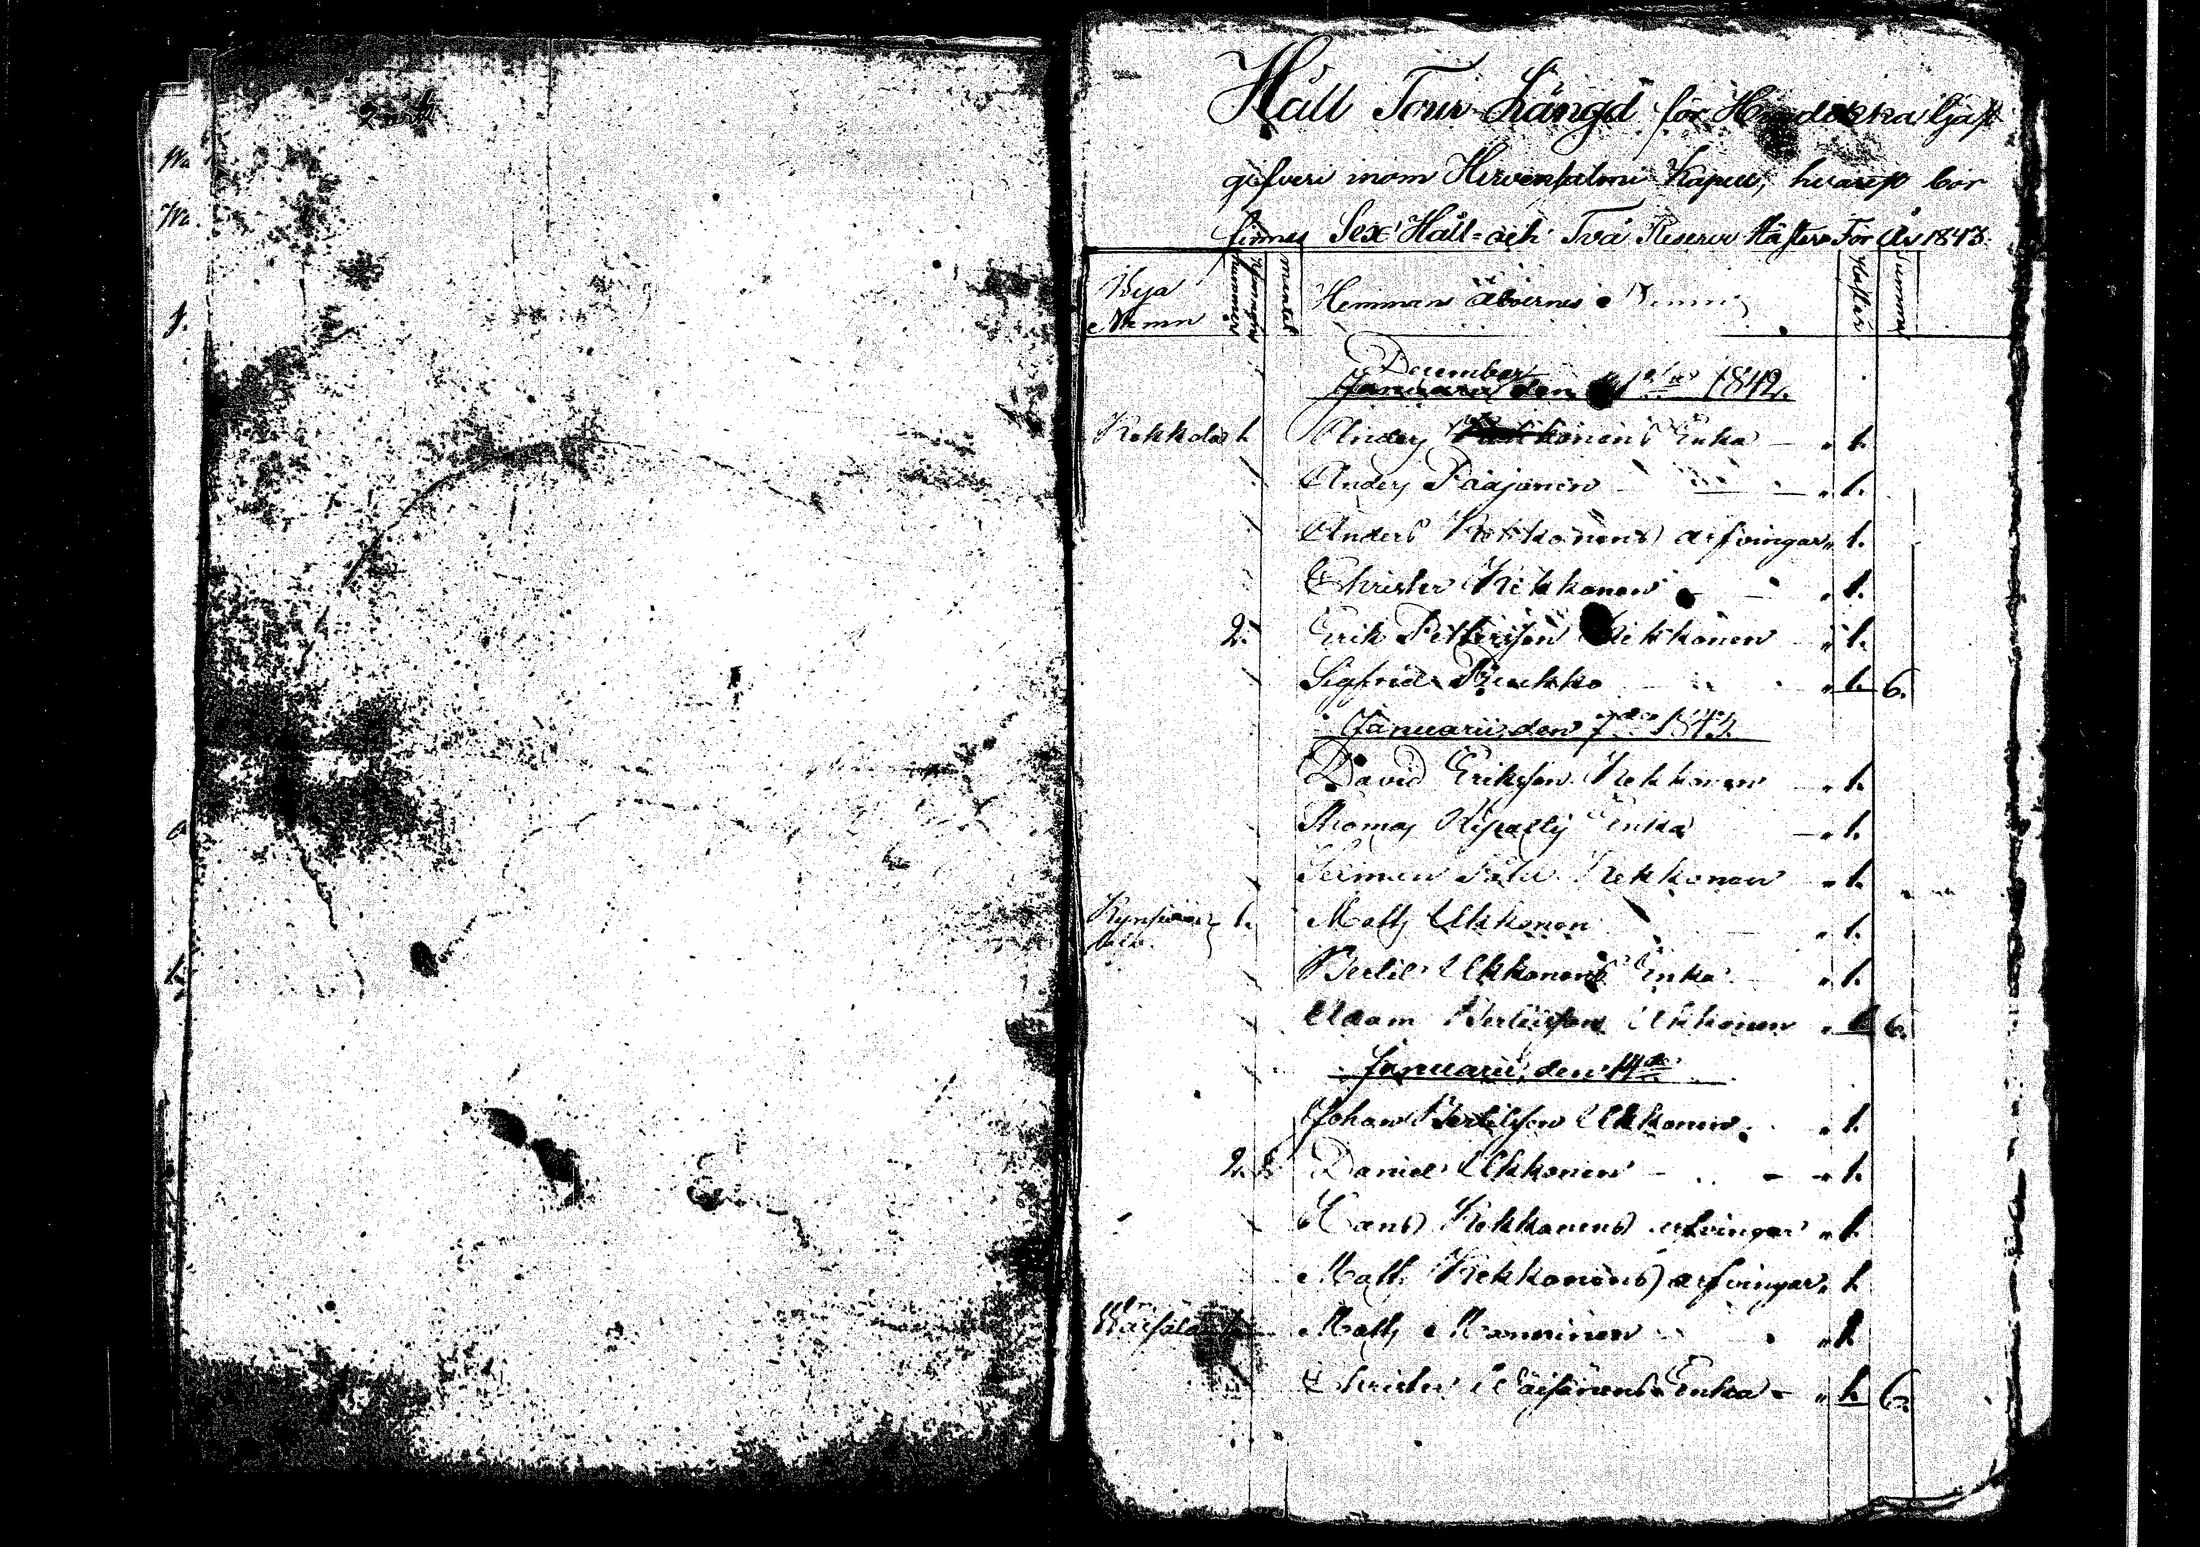 Håll Tour Längd för Gjäst
gifveri inom Hirvensalmi Kapell, hvarest bör
finnas Sex Håll- och Två Reserv Hästar För År 1843.
Bya Namn nummer mantal Hemmans Åboernes Namn Hästar Summa
December
Januarii den 1842.
Kekkola 1. Anders Kekkonens Enka " 1.
Anders Pääjänen " 1.
Anders Kekkonens arfvingar " 1.
Christer Kekkonen " 1.
2. Erik Pettersson Kekkonen " 1.
Sigfrid " 1. 6.
Januarii den 7de 1843.
David Eriksson Kekkonen " 1.
Thomas Enka " 1.
Simon Kekkonen " 1.
1. Matts Ukkonen " 1.
Bertil Ukkonens Enka " 1.
Adam Bertilsson Ukkonen " 1. 6.
Januarii den 14de
Johan Bertilsson Ukkonen " 1.
2. 2. Daniel Ukkonen " 1.
Hans Kekkonens arfvingar " 1.
Matts Kekkonens arfvingar " 1.
Matts Manninen " 1.
Christer Väisänens Enka " 1. 6.